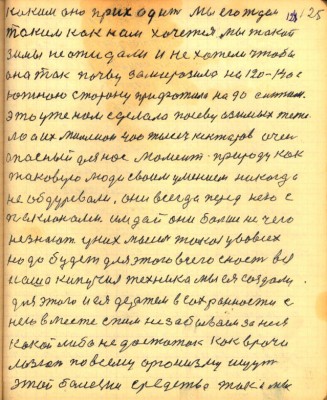 каким оно приходит мы его ждем 125
таким как нам хочется мы такой
зимы не ожидали и не хотели чтобы
она так почву заморозила на 120-140 с
южною сторону приморозило на 90 сантим.
это уже нам сделала посеву озимых
миллион 400 тысеч гектаров очен
опасный для нас момент. природу как
таковую люди своим умением никогда
не обдурювали, они всегда перед нею с
поклонами им дай они больше не чего
не знают у них мысля такая
надо будет для этого всего
наша кипучия техника мы ея создали
для этого и ея держем в сохранности с
нею вместе с тем не забываем за нея
какой либо не достаток как врачи
по всему организму ищут
этой болезни средство так и мы